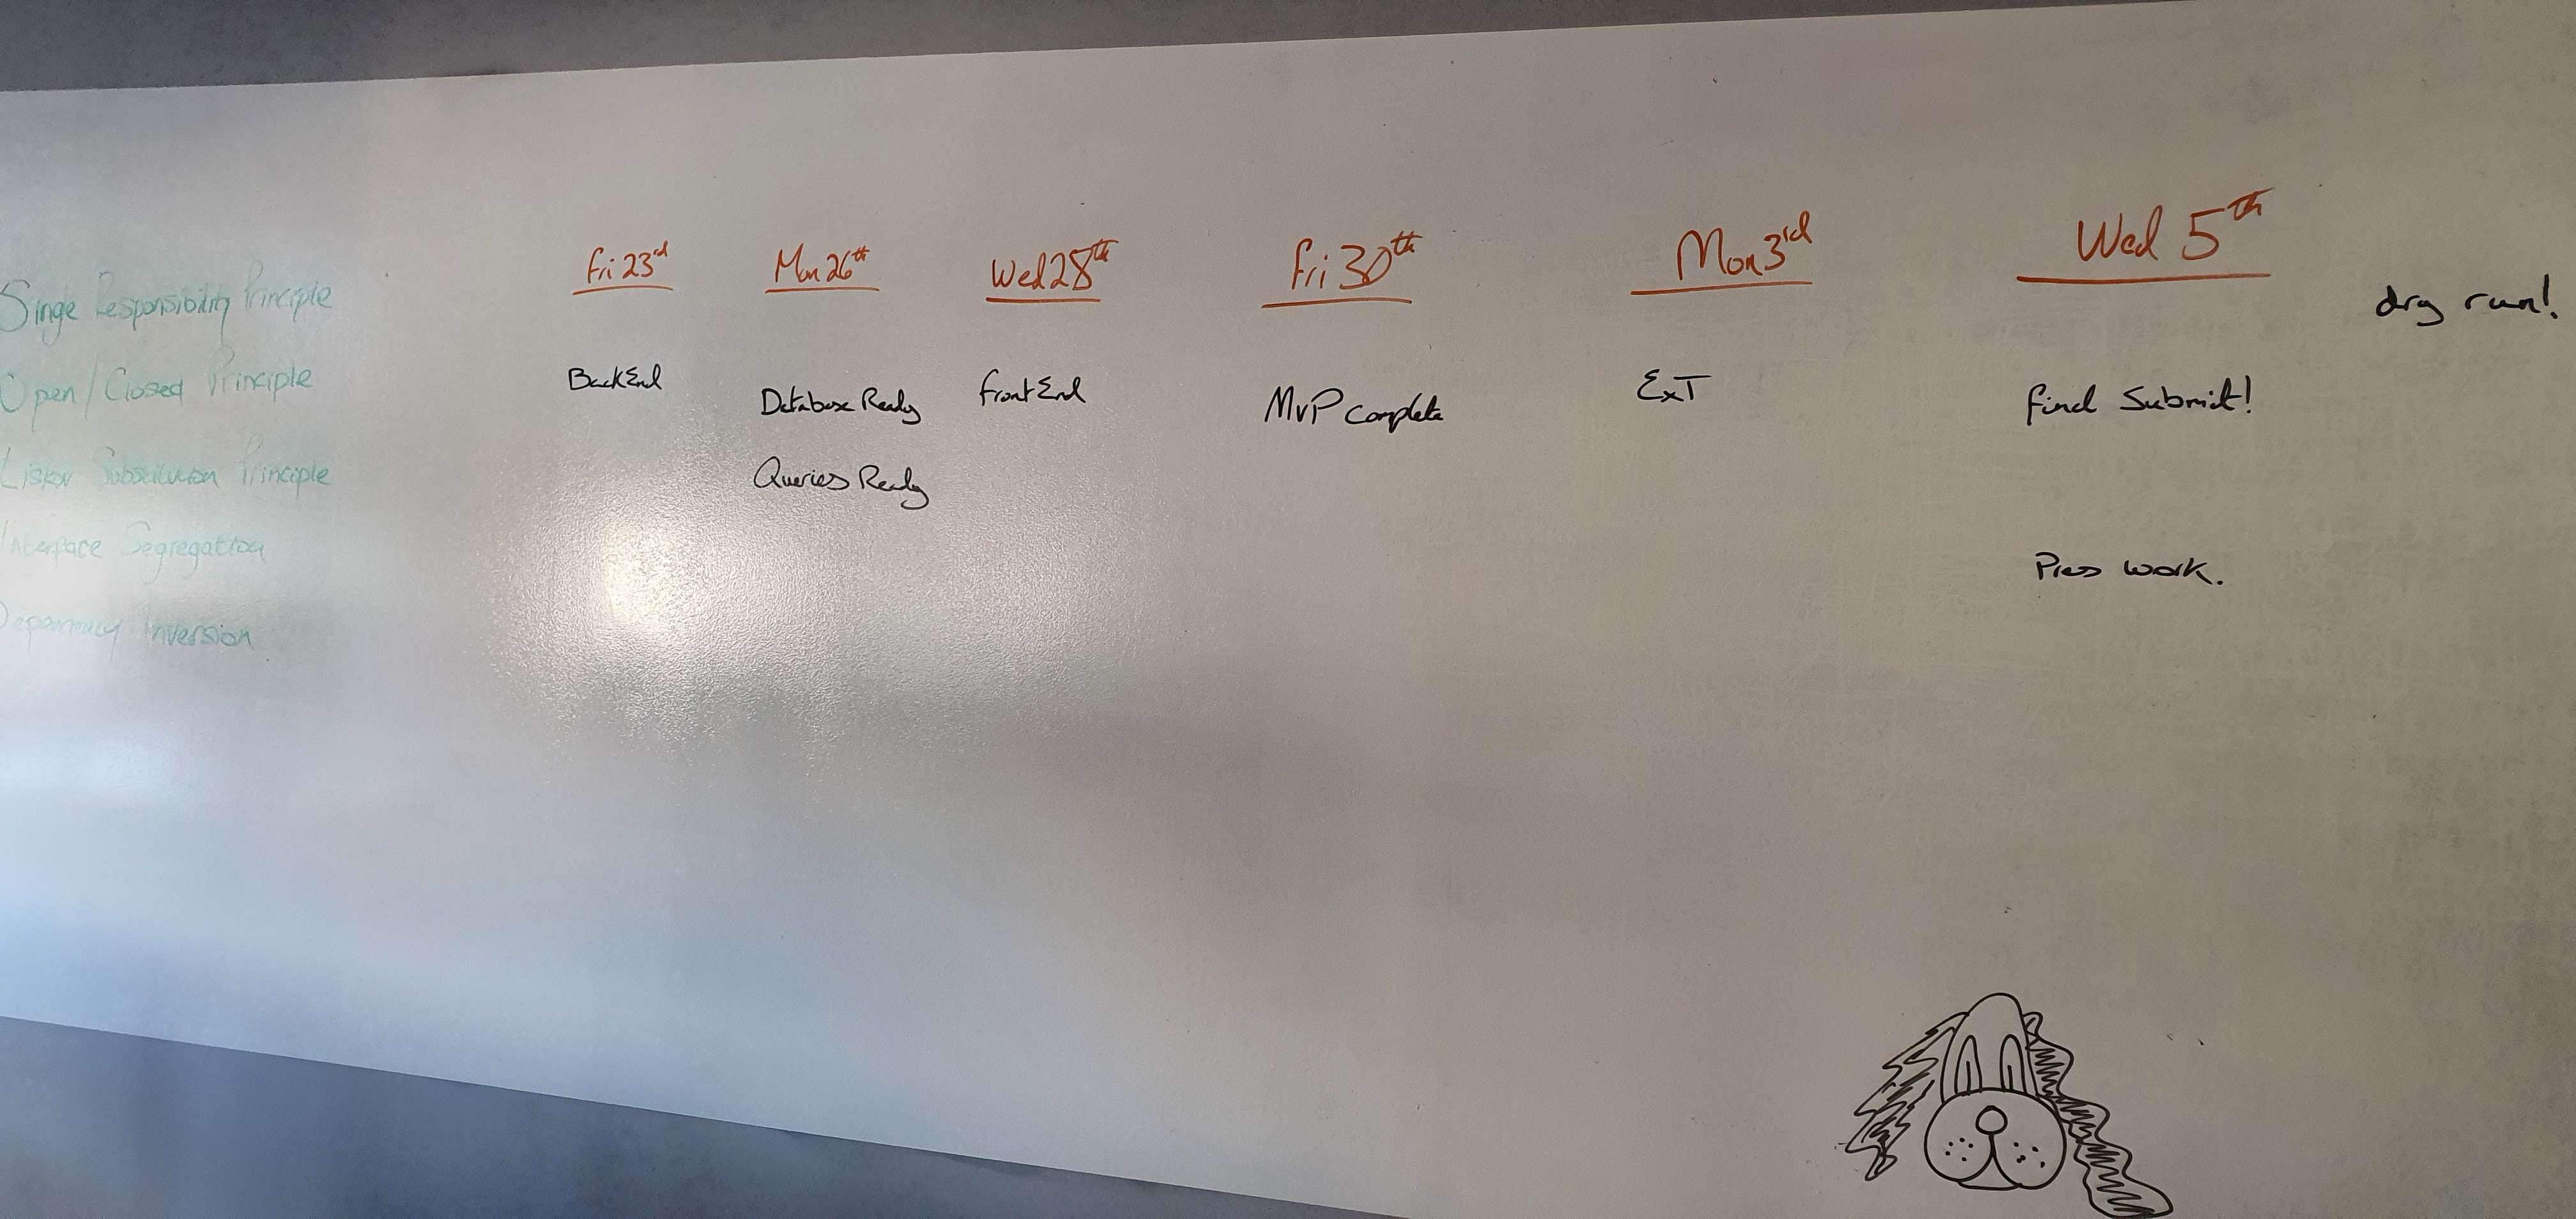 Singe Responsibility Principle
Open/Closed Principle
Liskov Substitution Principle
Interface Segregation
Dependency Inversion
Fri 23rd
BackEnd
Mon 26th
Database Ready
Queries Ready
Wed 28th
FrontEnd
Fri 30th
MVP complete
Mon 3rd
ExT
Wed 5th
Final Submit!
Pres work.
dry run!